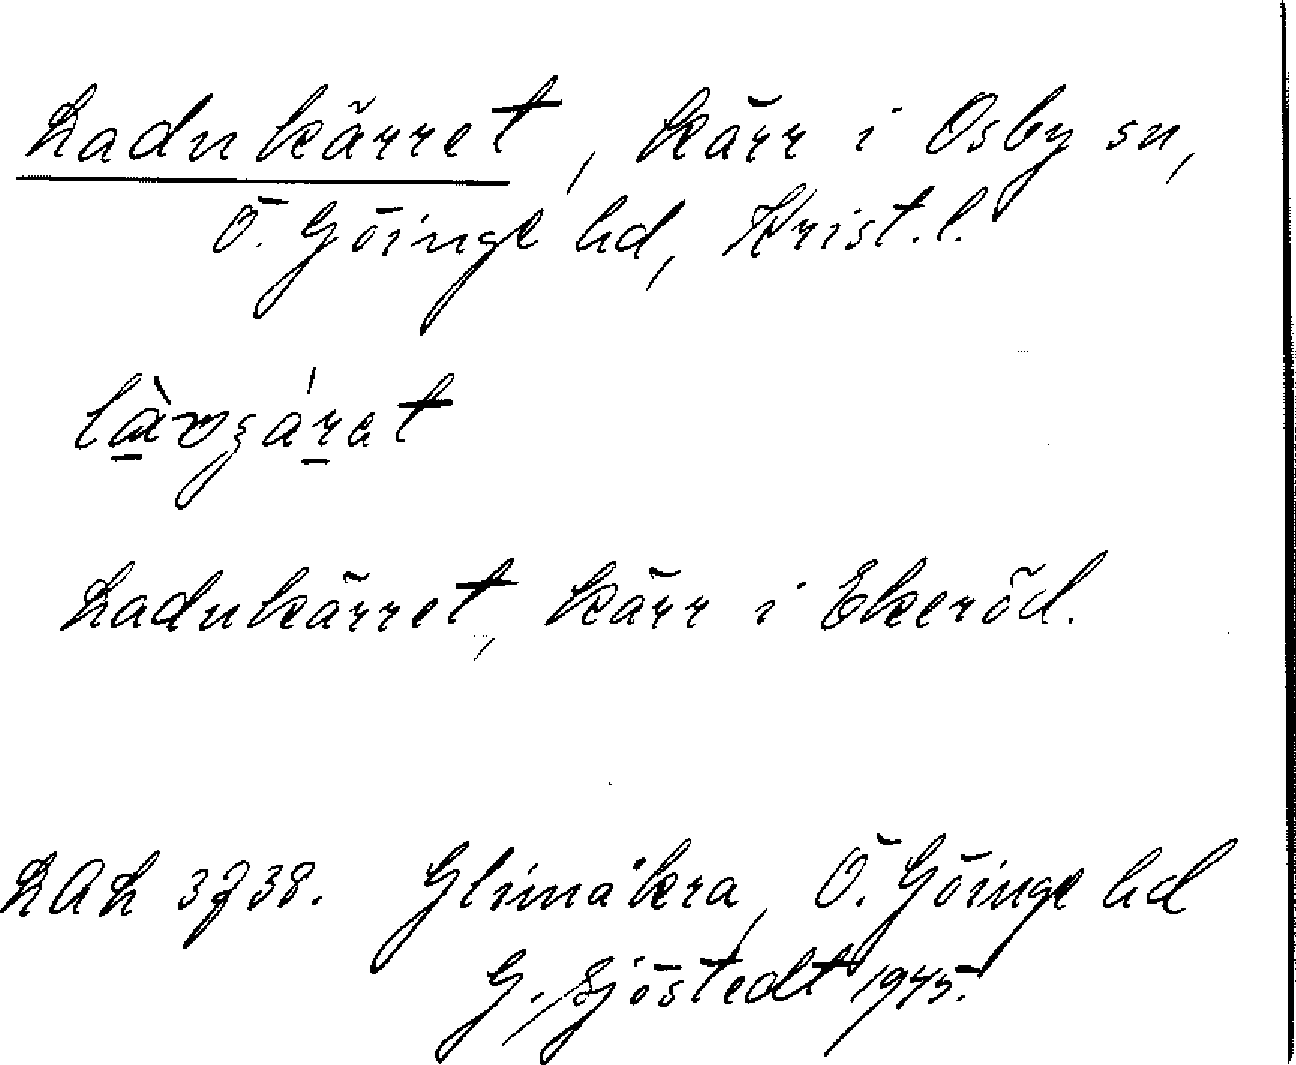 Ladukärret, kärr i Osby sn,
Ö. Göinge hd, Krist. l.
Ladukärret, kärr i Ekeröd.
LAL 3738. Glimåkra, Ö. Göinge hd
G. Sjöstedt 1945.